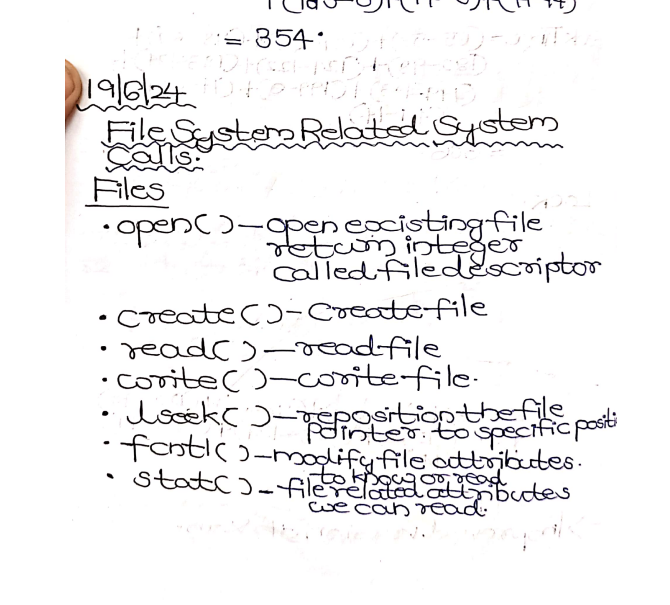 = 354.
19/6/24
File System Related System
Calls:
Files
• open( ) – open existing file
return integer
called file descriptor
• create( ) – Create file
• read( ) – read file
• write( ) – write file.
• lseek( ) – reposition the file
pointer. to specific positi
• fcntl( ) – modify file attributes.
to know or read
• stat( ) – file related attributes
we can read.